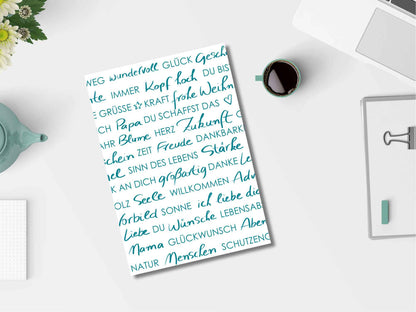 WEG wundervoll GLÜCK Gesch
te IMMER Kopf hoch DU BIS
E GRÜSSE KRAFT frohe Weihn
CH Papa DU SCHAFFST DAS
AHR Blume HERZ Zukunft
schein ZEIT Freude DANKBARK
el SINN DES LEBENS Stärke
K AN DICH großartig DANKE Le
OLZ Seele WILLKOMMEN Adv
orbild SONNE ich liebe di
Liebe DU Wünsche LEBENSAB
Mama GLÜCKWUNSCH Aben
NATUR Menschen SCHUTZENG